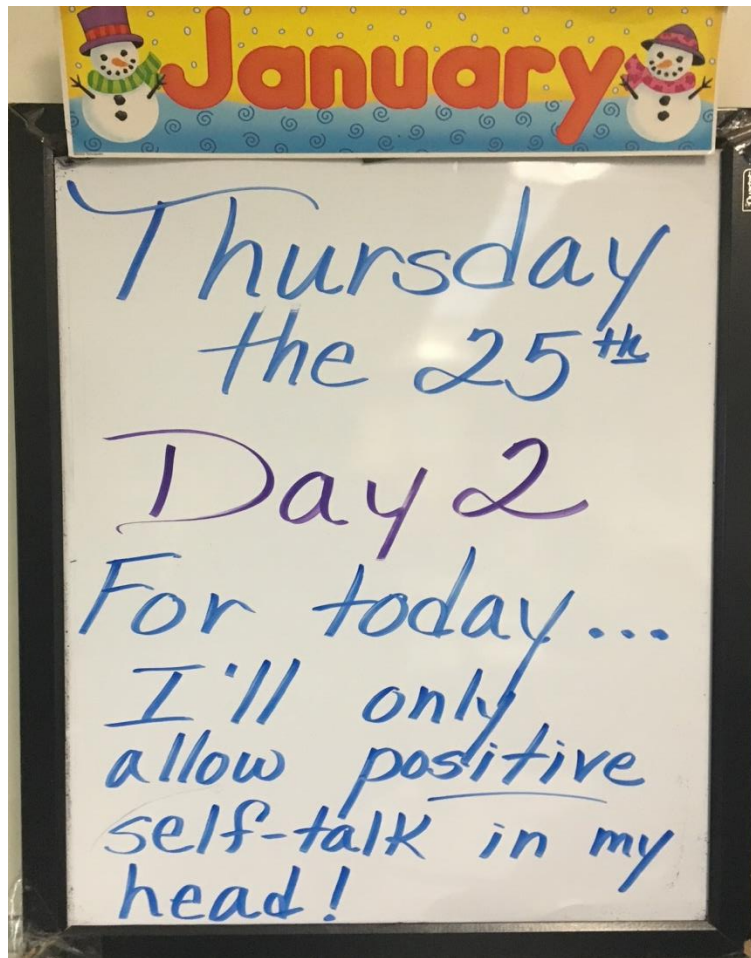 January
Thursday
the 25th
Day 2
For today...
I'll only
allow positive
self-talk in my
head!